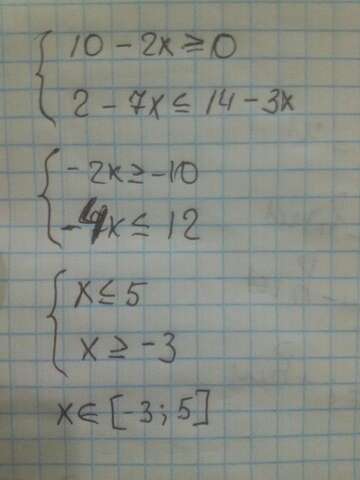 10 - 2x ≥ 0
2 - 7x ≤ 14 - 3x
- 2x ≥ -10
-4x ≤ 12
x ≤ 5
x ≥ -3
x ∈ [-3; 5]